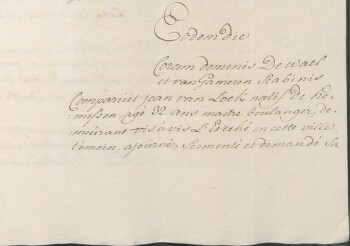 Eodem die
Coram dominis De wael
et van Gameren Scabinis
Comparuit jean van Lock natif de he-
missen, agé 32 ans maitre boulanger, de-
meurant vis à vis L'Evêché en cette ville
temoin, ajourné, sermenté et demandé sa